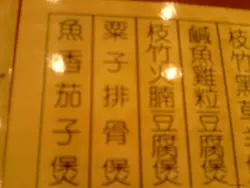 枝竹
鹹魚雞粒豆腐煲
枝竹火腩豆腐煲
粟子排骨煲
魚香茄子煲